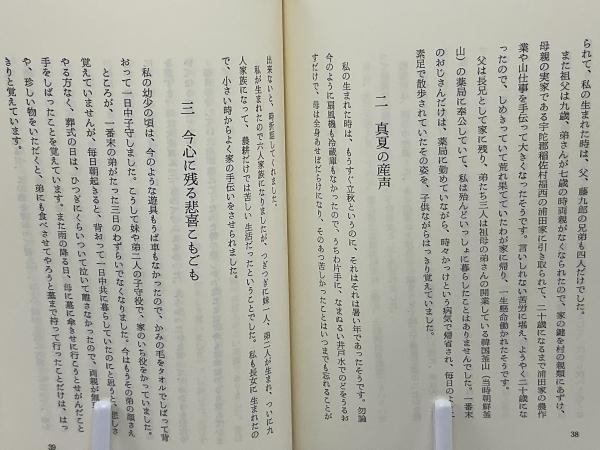 られて、私の生まれた時は、父、藤九郎の兄弟も四人だけでした。
また祖父は九歳、弟さんが七歳の時両親がなくなられたので、家の鍵を村の親類にあずけ、
母親の実家である宇陀郡稲佐村福西の浦田家に引き取られて、二十歳になるまで浦田家の農作
業や山仕事を手伝って大きくなったそうです。言いしれない苦労に堪え、ようやく二十歳にな
ったので、しめきっていて荒れ果てていたわが家に帰り、一生懸命働かれたそうです。
父は長兄として家に残り、弟たち三人は祖母の弟さんの開業している韓国釜山（当時朝鮮釜
山）の薬局に奉公していて、私は殆んどいっしょに暮らしたことはありませんでした。一番末
のおじさんだけは、薬局に勤めていながら、時々かっけという病気で帰省され、毎日のように
素足で散歩されていたその姿を、子供ながらはっきり覚えていました。
二 真夏の産声
私の生まれた時は、もうすぐ立秋というのに、それはそれは暑い年であったそうです。勿論
今のように扇風機も冷蔵庫もなかったので、うちわ片手に、なまぬるい井戸水でのどをうるお
すだけで、母は全身あせばだらけになり、そのあつ苦しかったことはいつまでも忘れることが
出来ないと、時折話してくれました。
私が生まれたので六人家族になりましたが、つぎつぎに妹一人、弟二人が生まれ、ついに九
人家族になって、農耕だけでは苦しい生活だったということでした。私も長女に生まれたの
で、小さい時からよく家の手伝いをさせられました。
三 今心に残る悲喜こもごも
私の幼少の頃は、今のような遊具もうば車もなかったので、かみの毛をタオルでしばって背
おって一日中子守しました。こうして妹や弟二人の子守役で、家のいち役をかっていました。
ところが、一番末の弟がたった三日のわずらいでなくなりました。今はもうその弟の顔さえ
覚えていませんが、毎日朝起きると、背おって一日中共に暮らしていたのにと思うと、悲しさ
やる方なく、葬式の日は、ひつぎにくらいついて泣いて離さなかったので、両親が無
手をしばったことを覚えています。また雨の降る日、母に墓に傘きせに行こうとせがんだこと
や、珍しい物をいただくと、弟にも食べさせてやろうと墓まで持って行ったことだけは、はっ
きりと覚えています。
38
39